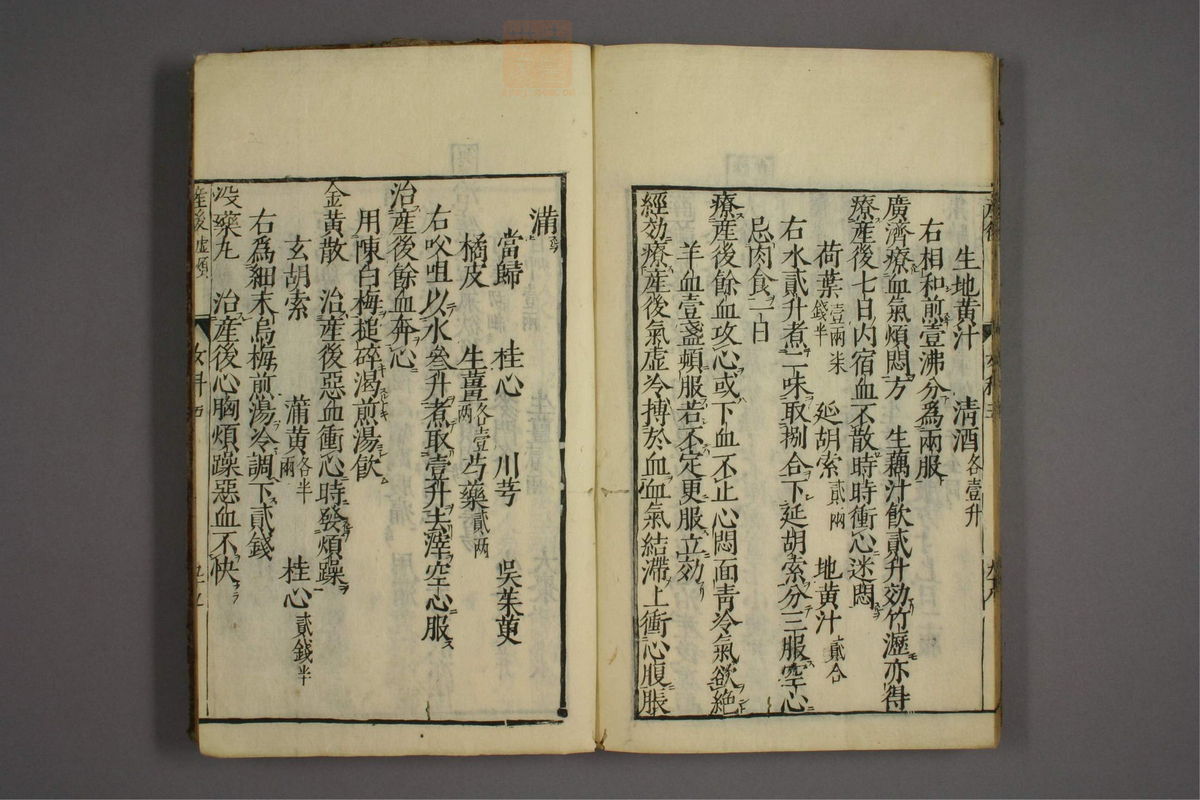 生地黄汁　清酒各壹升
右相和煎壹沸分為兩服
廣濟療血氣煩悶方　生藕汁飲貳升効竹瀝亦得
療産後七日内宿血不散時時衝心迷悶
荷葉壹兩半　延胡索貳兩　地黄汁貳合
右水貳升煮二味取捌合下延胡索分三服空心
忌肉食一日
療産後餘血攻心或下血不止心悶面青冷氣欲絶
羊血壹盞頓服若不定更服立効
經効療産後氣虚冷搏於血血氣結滯上衝心腹脹
滿
當歸　桂心　川芎　吳茱萸
橘皮　生薑各壹兩　芍藥貳兩
右㕮咀以水叄升煮取壹升去滓空心服
治産後餘血奔心
用陳白梅搥碎濁煎湯飲
金黄散　治産後惡血衝心時發煩躁
玄胡索　蒲黄各半兩　桂心貳錢半
右為細末烏梅煎湯冷調下貳錢
沒藥丸　治産後心胸煩躁惡血不快
産後虚煩　女科五